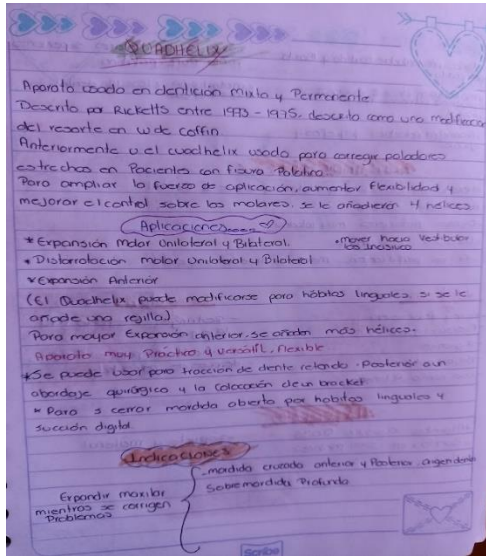 QUADHELIX
Aparato usado en dentición mixta y Permanente
Descrito por Ricketts entre 1973 - 1975, descrito como una modificación
del resorte en w de coffin
Anteriormente u el cuadhelix usado para corregir paladares
estrechos en Pacientes con fisura Palatina
Para ampliar la fuerza de aplicación, aumentar flexibilidad y
mejorar el control sobre los molares. se le añadieron 4 hélices
Aplicaciones
* Expansión Molar Unilateral y Bilateral. • mover hacia Vestibular
• Distorrotación molar Unilateral y Bilateral los incisivo
* Expansión Anterior
(El Quadhelix puede modificarse para hábitos linguales si se le
añade una rejilla)
Para mayor Expansión anterior, se añaden más hélices.
Aparato muy Práctico y versátil, flexible
* Se puede usar para tracción de diente retenido. Posterior a un
abordaje quirúrgico y la colocación de un bracket
* Para cerrar mordida abierta por habitos linguales y
succión digital
Indicaciones
mordida cruzada anterior y Posterior
Sobremordida Profunda
Expandir maxilar
mientras se corrigen
Problemas
Scribe